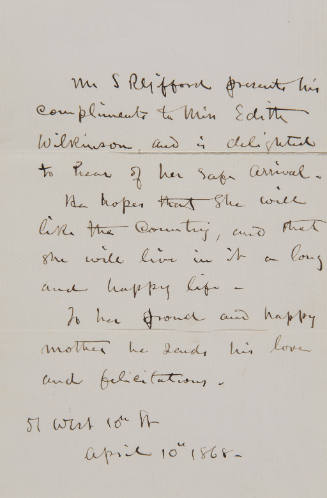 Mr S R Gifford presents his
compliments to Miss Edith
Wilkinson, and is delighted
to hear of her safe arrival.
He hopes that she will
like the Country, and that
she will live in it a long
and happy life -
To her proud and happy
mother he sends his love
and felicitations.
51 West 10th St
April 10th 1868-